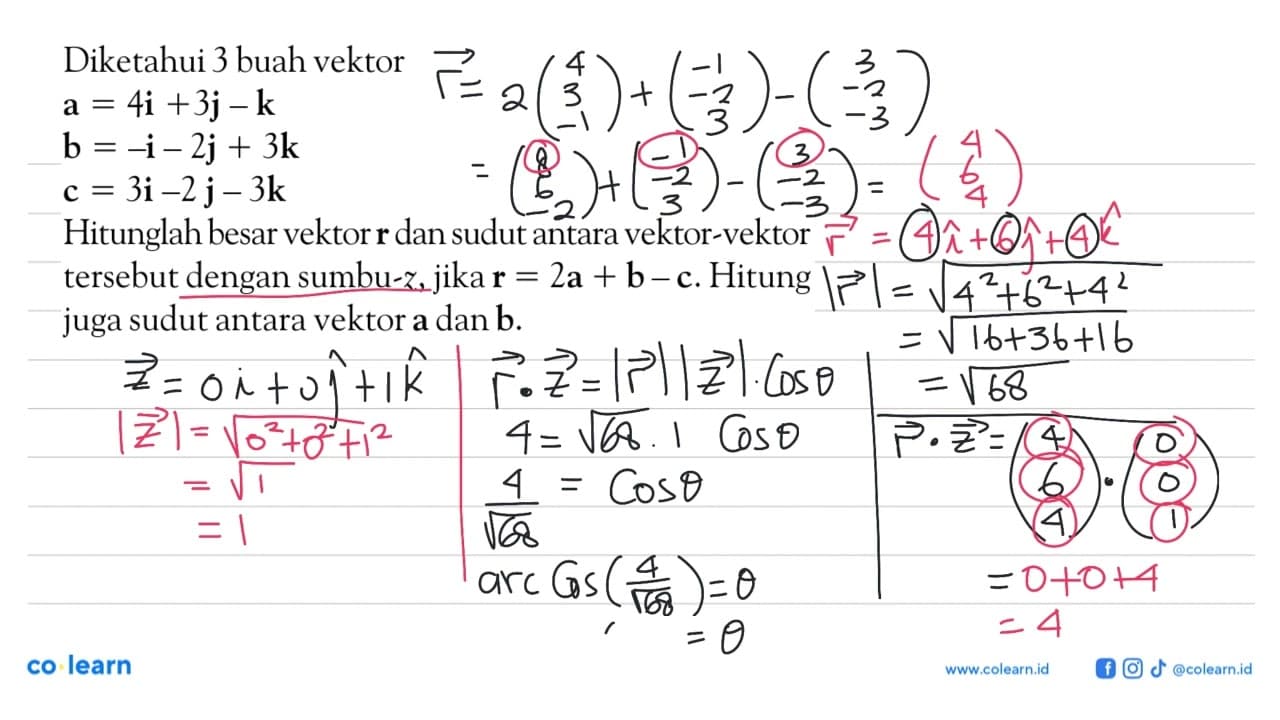 Diketahui 3 buah vektor
a = 4i +3j – k
b = –i – 2j + 3k
c = 3i –2 j – 3k
Hitunglah besar vektor r dan sudut antara vektor-vektor
tersebut dengan sumbu-z, jika r = 2a + b – c. Hitung
juga sudut antara vektor a dan b.
r⃗ = 2(4 3 -1) + (-1 -2 3) - (3 -2 -3)
= (8 6 -2) + (-1 -2 3) - (3 -2 -3) = (4 6 4)
r⃗ = 4î + 6ĵ + 4k̂
|r⃗| = √4² + 6² + 4²
= √16+36+16
= √68
z⃗ = 0i + 0ĵ + 1k̂
|z⃗| = √0² + 0² + 1²
= √1
= 1
r⃗ . z⃗ = |r⃗| |z⃗| . Cos θ
4 = √68 . 1 Cos θ
4/√68 = Cos θ
arc Cos (4/√68) = θ
= θ
r⃗ . z⃗ = (4 6 4) . (0 0 1)
= 0+0+4
= 4
co learn
www.colearn.id
@colearn.id